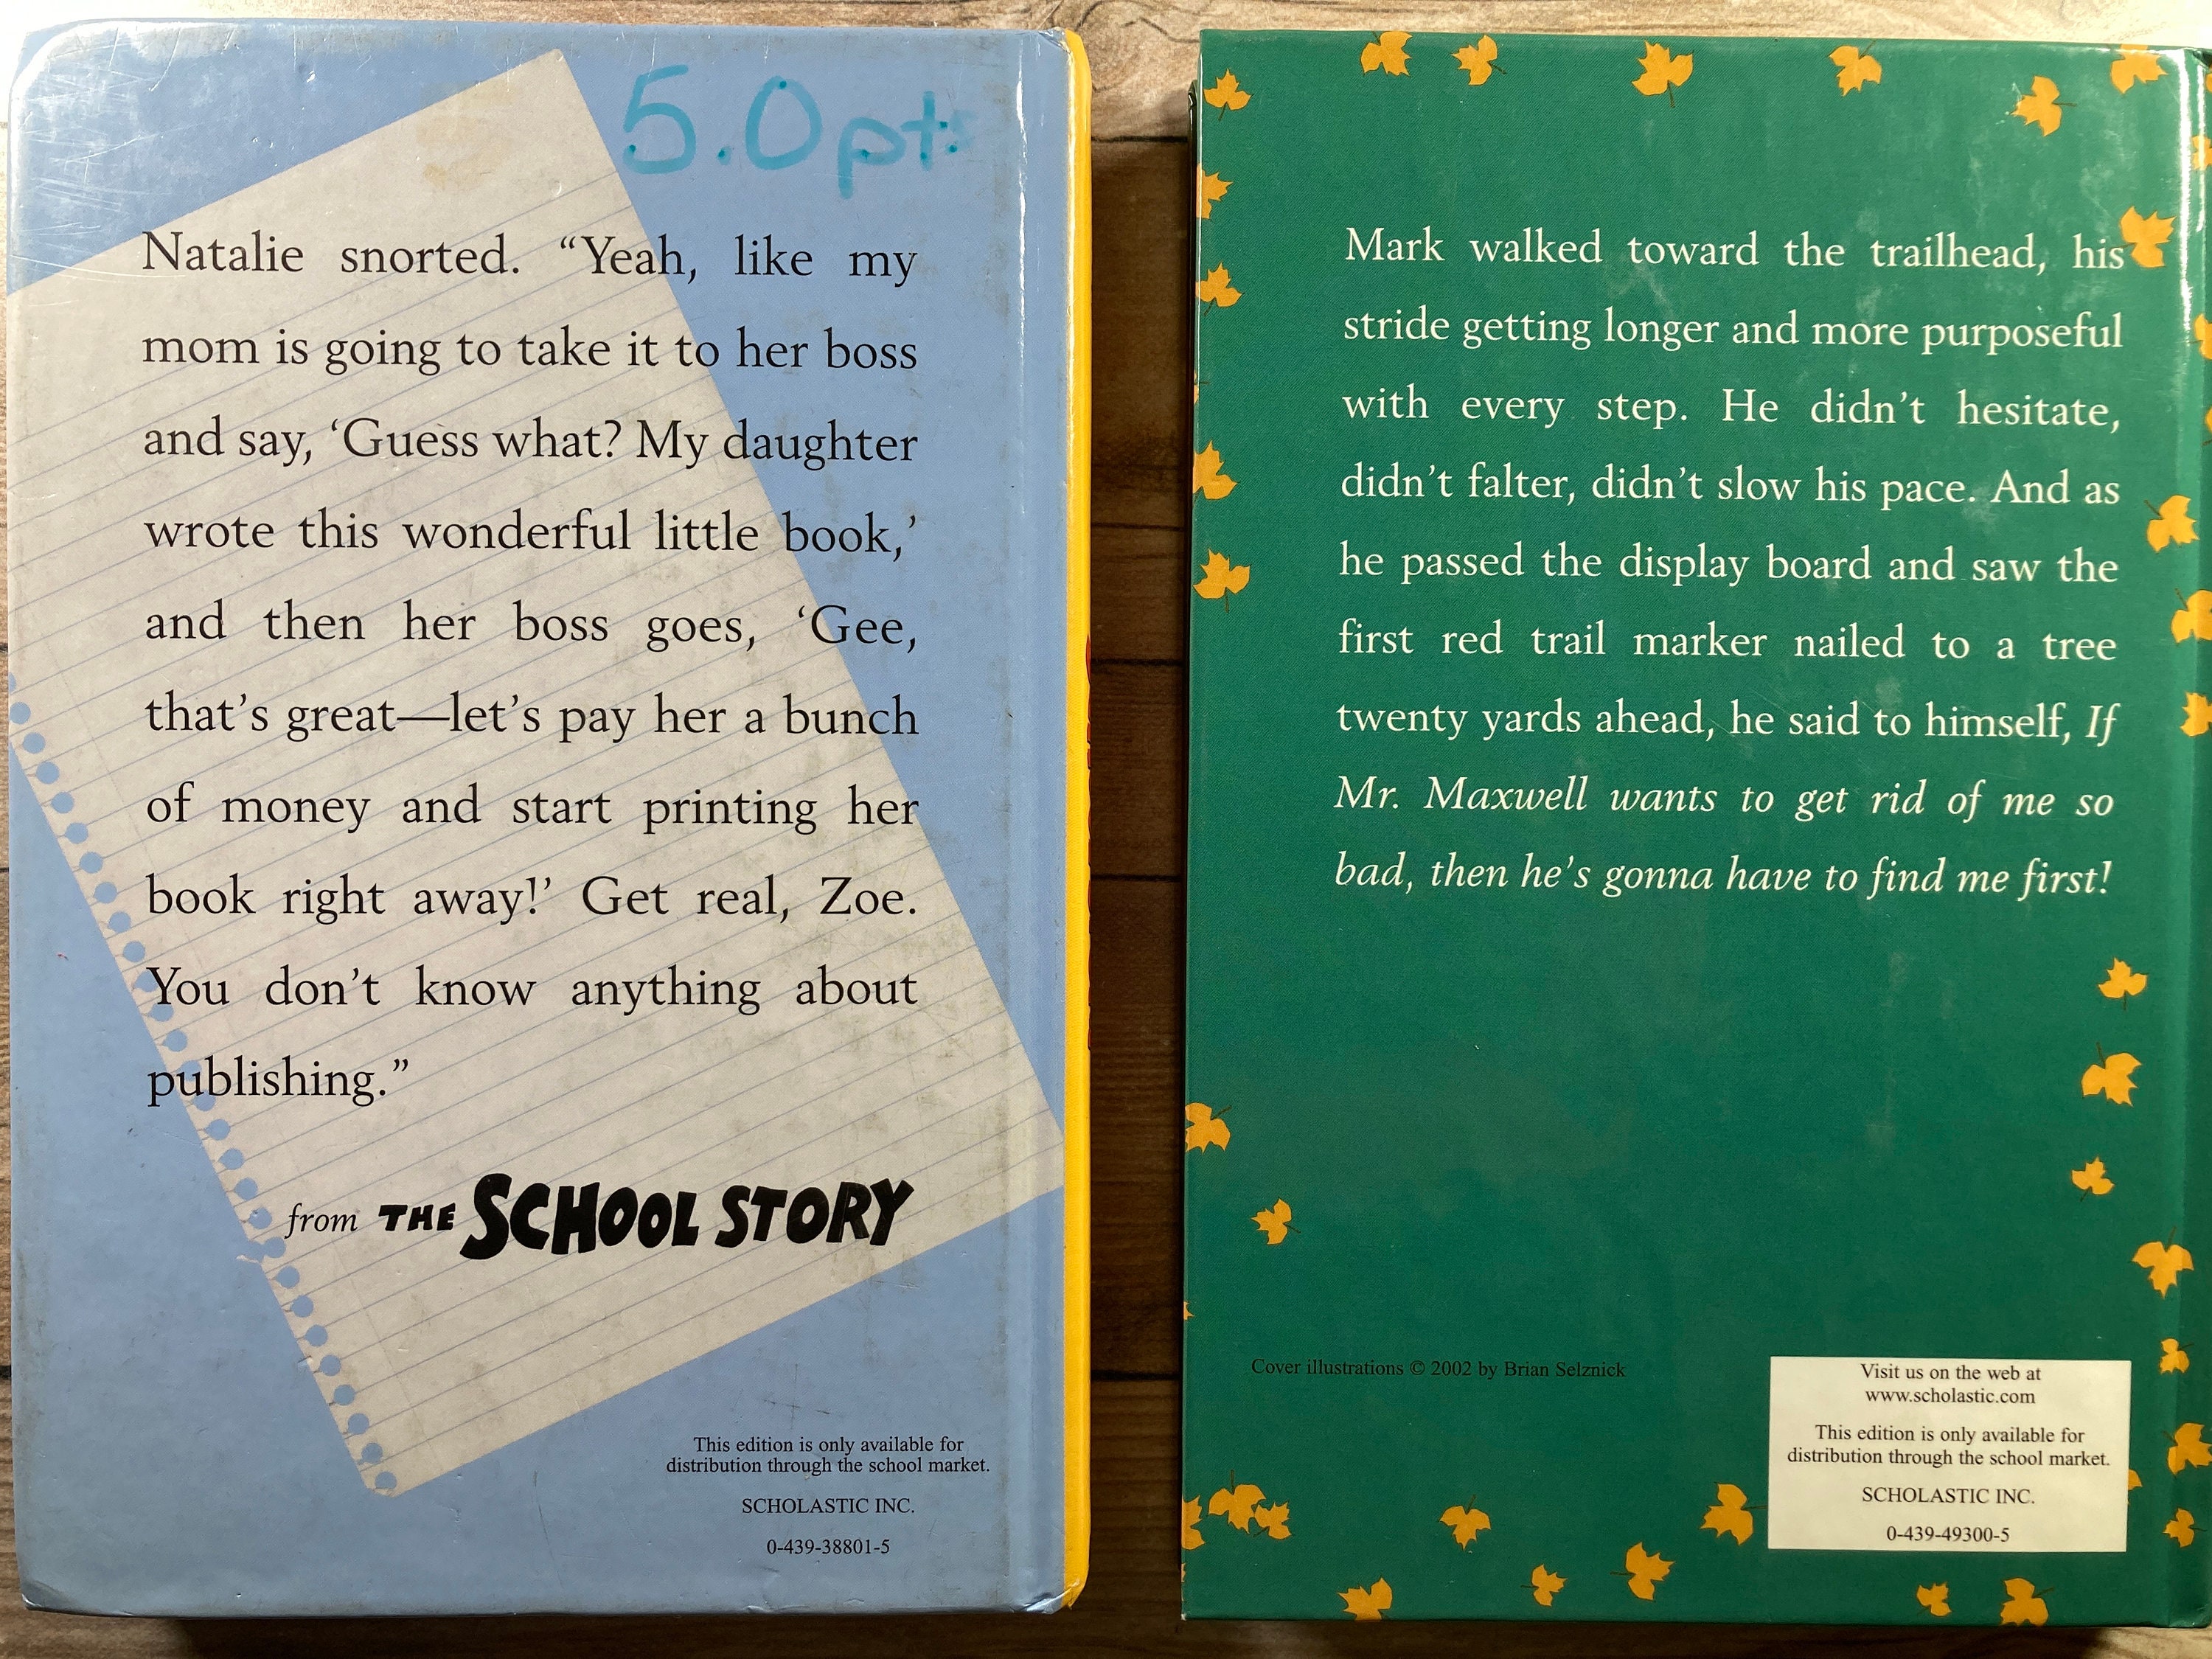 5.0 pts
Natalie snorted. “Yeah, like my
mom is going to take it to her boss
and say, ‘Guess what? My daughter
wrote this wonderful little book,’
and then her boss goes, ‘Gee,
that’s great—let’s pay her a bunch
of money and start printing her
book right away!’ Get real, Zoe.
You don’t know anything about
publishing.”
from THE SCHOOL STORY
This edition is only available for
distribution through the school market.
SCHOLASTIC INC.
0-439-38801-5
Mark walked toward the trailhead, his
stride getting longer and more purposeful
with every step. He didn’t hesitate,
didn’t falter, didn’t slow his pace. And as
he passed the display board and saw the
first red trail marker nailed to a tree
twenty yards ahead, he said to himself, If
Mr. Maxwell wants to get rid of me so
bad, then he’s gonna have to find me first!
Cover illustrations © 2002 by Brian Selznick
Visit us on the web at
www.scholastic.com
This edition is only available for
distribution through the school market.
SCHOLASTIC INC.
0-439-49300-5